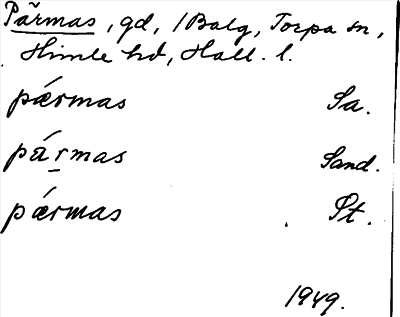 Pärmas, gd, 1 Balg, Torpa sn,
Himle hd, Hall. l.
pǽrmas Sa.
pá̈rmas Sand.
pǽrmas St.
1949.